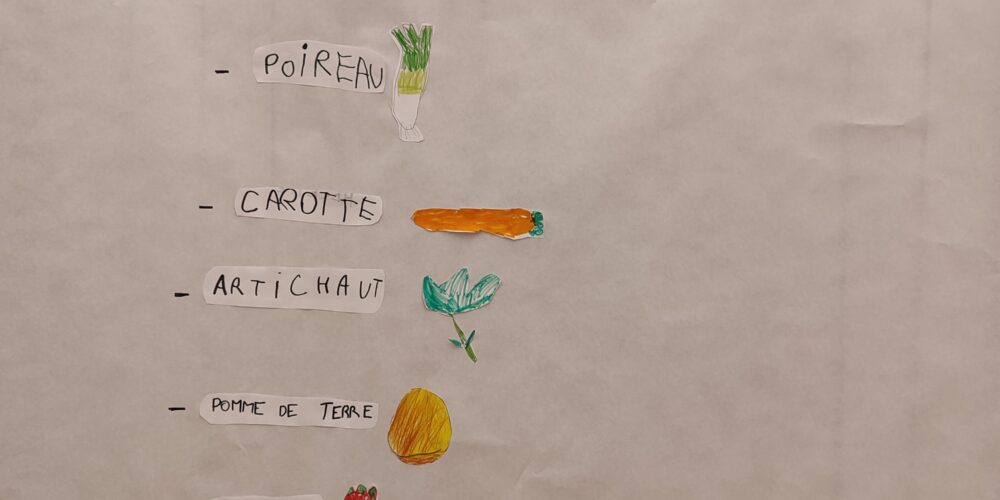 - POIREAU
- CAROTTE
- ARTICHAUT
- POMME DE TERRE